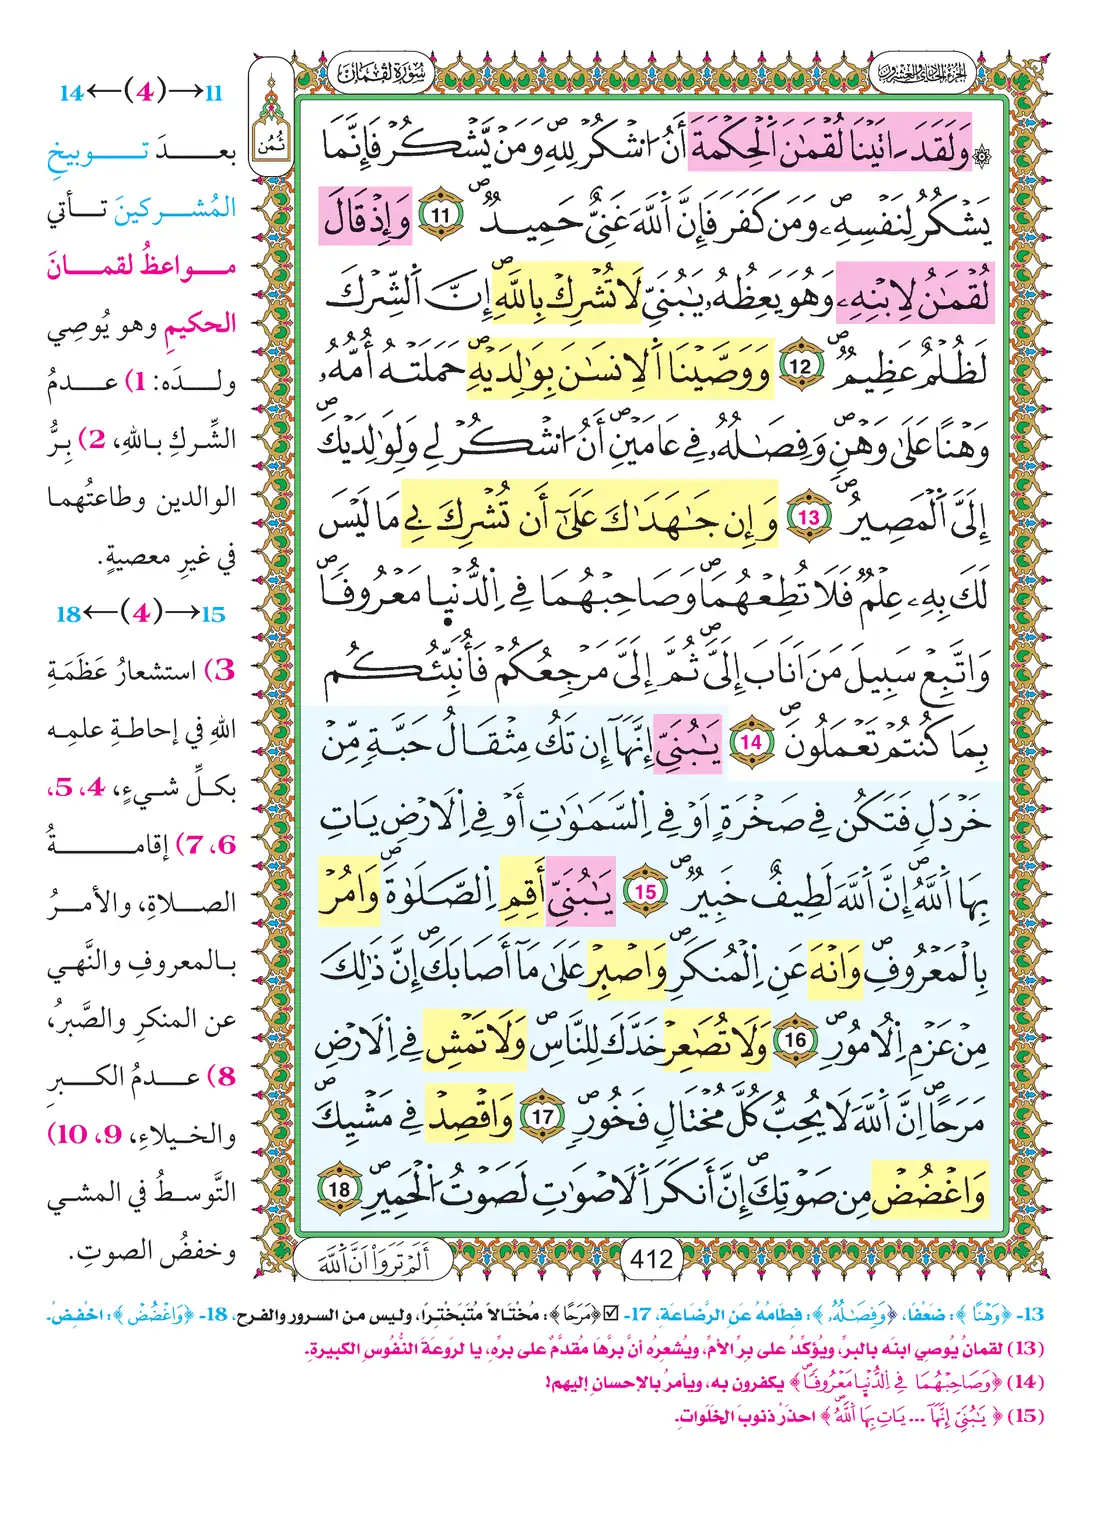 الجزء الحادي والعشرون
سورة لقمان
ثمن
وَلَقَدَ ـاتَيْنَا لُقْمَٰنَ اَ۬لْحِكْمَةَ أَنُ ا۟شْكُرْ لِلهِۖ وَمَنْ يَّشْكُرْ فَإِنَّمَا
يَشْكُرُ لِنَفْسِهِۦۖ وَمَن كَفَرَ فَإِنَّ اَ۬للَّهَ غَنِيٌّ حَمِيدٞۖ 11 وَإِذْ قَالَ
لُقْمَٰنُ لِابْنِهِۦ وَهُوَ يَعِظُهُۥ يَٰبُنَيِّ لَا تُشْرِكْ بِاللَّهِۖ إِنَّ اَ۬لشِّرْكَ
لَظُلْمٌ عَظِيمٞۖ 12 وَوَصَّيْنَا اَ۬لِانسَٰنَ بِوَٰلِدَيْهِۖ حَمَلَتْهُ أُمُّهُۥ
وَهْناً عَلَىٰ وَهْنٖۖ وَفِصَٰلُهُۥ فِے عَامَيْنِۖ أَنُ ا۟شْكُرْ لِے وَلِوَٰلِدَيْكَۖ
إِلَيَّ اَ۬لْمَصِيرُۖ 13 وَإِن جَٰهَدَٰكَ عَلَىٰٓ أَن تُشْرِكَ بِے مَا لَيْسَ
لَكَ بِهِۦ عِلْمٞ فَلَا تُطِعْهُمَاۖ وَصَاحِبْهُمَا فِے اِ۬لدُّنْي۪ا مَعْرُوفاٗۖ
وَاتَّبِعْ سَبِيلَ مَنَ اَنَابَ إِلَيَّۖ ثُمَّ إِلَيَّ مَرْجِعُكُمْ فَأُنَبِّئُكُم
بِمَا كُنتُمْ تَعْمَلُونَۖ 14 يَٰبُنَيِّ إِنَّهَآ إِن تَكُ مِثْقَالُ حَبَّةٖ مِّنْ
خَرْدَلٖ فَتَكُن فِے صَخْرَةٍ اَوْ فِے اِ۬لسَّمَٰوَٰتِ أَوْ فِے اِ۬لَارْضِ يَاتِ
بِهَا اَ۬للَّهُۖ إِنَّ اَ۬للَّهَ لَطِيفٌ خَبِيرٞۖ 15 يَٰبُنَيِّ أَقِمِ اِ۬لصَّلَوٰةَۖ وَامُرْ
بِالْمَعْرُوفِۖ وَانْهَ عَنِ اِ۬لْمُنكَرِۖ وَاصْبِرْ عَلَىٰ مَآ أَصَابَكَۖ إِنَّ ذَٰلِكَ
مِنْ عَزْمِ اِ۬لُامُورِۖ 16 وَلَا تُصَٰعِرْ خَدَّكَ لِلنَّاسِۖ وَلَا تَمْشِ فِے اِ۬لَارْضِ
مَرَحاًۖ اِنَّ اَ۬للَّهَ لَا يُحِبُّ كُلَّ مُخْتَالٖ فَخُورٖۖ 17 وَاقْصِدْ فِے مَشْيِكَۖ
وَاغْضُضْ مِن صَوْتِكَۖ إِنَّ أَنكَرَ اَ۬لَاصْوَٰتِ لَصَوْتُ اُ۬لْحَمِيرِۖ 18
412
أَلَمْ تَرَوَاْ اَنَّ اَ۬للَّهَ
11→(4)←14
بعـدَ تـوبيخِ
المُشـركينَ تـأتي
مـواعظُ لقمـانَ
الحكيمِ وهو يُوصِي
ولـدَه: 1) عـدمُ
الشِّركِ بـاللهِ، 2) بِـرُّ
الوالدين وطاعتُهمـا
في غيرِ معصيةٍ.
15→(4)←18
3) استشعارُ عَظَمَةِ
اللهِ في إحاطـةِ علمِـه
بكـلِّ شـيءٍ، 4، 5،
6، 7) إقامـةُ
الصـلاةِ، والأمـرُ
بـالمعروفِ والنَّهـي
عن المنكرِ والصَّبرُ،
8) عـدمُ الكـبرِ
والخـيلاءِ، 9، 10)
التَّوسـطُ في المشـي
وخفضُ الصوتِ.
13- ﴿وَهْناً﴾: ضَعْفًا، ﴿وَفِصَٰلُهُۥ﴾: فِطَامُهُ عَنِ الرَّضَاعَةِ، 17- ☑ ﴿مَرَحاً﴾: مُخْتَالاً مُتَبَخْتِرًا، وليس من السرور والفرح، 18- ﴿وَاغْضُضْ﴾: اخْفِضْ.
(13) لقمانُ يُوصِي ابنَه بالبرِّ، ويُؤكِّدُ على بِرِّ الأمِّ، ويُشعِرُه أنَّ برَّهَا مُقدَّمٌ على برِّه، يا لروعَةِ النُّفُوسِ الكبيرةِ.
(14) ﴿وَصَاحِبْهُمَا فِے اِ۬لدُّنْي۪ا مَعْرُوفاٗۖ﴾ يكفرون به، ويأمرُ بالإحسانِ إليهم!
(15) ﴿يَٰبُنَيِّ إِنَّهَآ ... يَاتِ بِهَا اَ۬للَّهُۖ﴾ احذرْ ذنوبَ الخَلَواتِ.